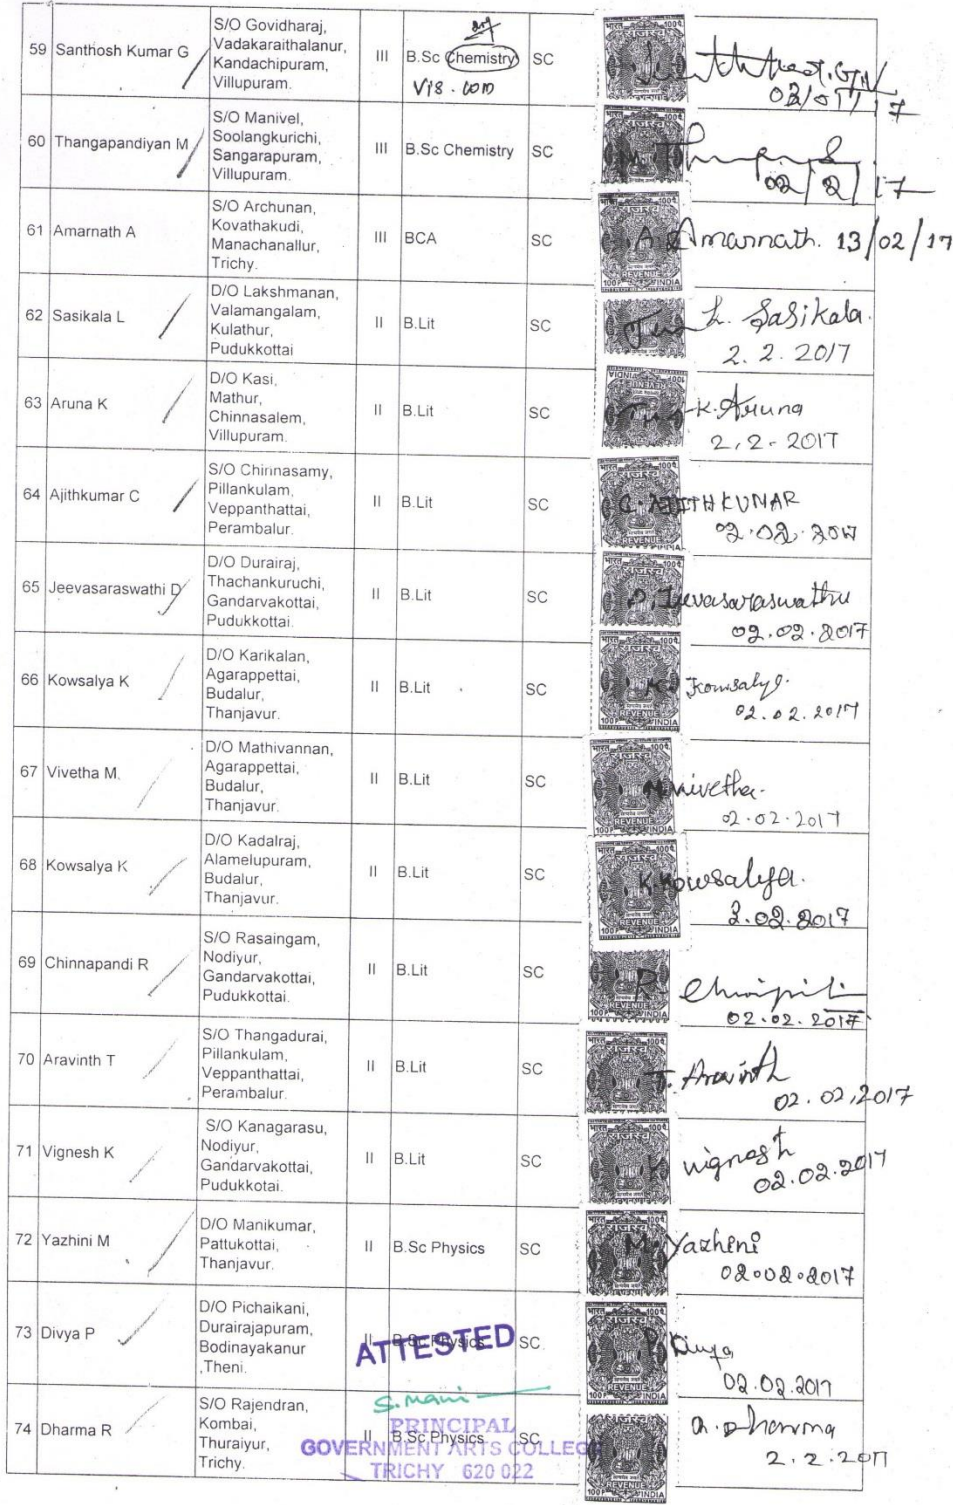 59 Santhosh Kumar G S/O Govidharaj, Vadakaraithalanur, Kandachipuram, Villupuram. III B.Sc Chemistry SC
02/01/17
60 Thangapandiyan M S/O Manivel, Soolangkurichi, Sangarapuram, Villupuram. III B.Sc Chemistry SC
02/2/17
61 Amarnath A S/O Archunan, Kovathakudi, Manachanallur, Trichy. III BCA SC
A. Amarnath. 13/02/17
62 Sasikala L D/O Lakshmanan, Valamangalam, Kulathur, Pudukkottai II B.Lit SC
L. Sasikala.
2.2.2017
63 Aruna K D/O Kasi, Mathur, Chinnasalem, Villupuram. II B.Lit SC
K. Aruna
2.2-2017
64 Ajithkumar C S/O Chinnasamy, Pillankulam, Veppanthattai, Perambalur. II B.Lit SC
C. AJITHKUMAR
02.02.2017
65 Jeevasaraswathi D D/O Durairaj, Thachankuruchi, Gandarvakottai, Pudukkottai. II B.Lit SC
D. Jeevasaraswathi
02.02.2017
66 Kowsalya K D/O Karikalan, Agarappettai, Budalur, Thanjavur. II B.Lit SC
K. Kowsalya.
02.02.2017
67 Vivetha M. D/O Mathivannan, Agarappettai, Budalur, Thanjavur. II B.Lit SC
M. Nivetha.
02.02.2017
68 Kowsalya K D/O Kadalraj, Alamelupuram, Budalur, Thanjavur. II B.Lit SC
K. Kowsalya.
2.02.2017
69 Chinnapandi R S/O Rasaingam, Nodiyur, Gandarvakottai, Pudukkottai. II B.Lit SC
R.
02.02.2017
70 Aravinth T S/O Thangadurai, Pillankulam, Veppanthattai, Perambalur. II B.Lit SC
T. Aravinth
02.02.2017
71 Vignesh K S/O Kanagarasu, Nodiyur, Gandarvakottai, Pudukkotai. II B.Lit SC
K. Vignesh
02.02.2017
72 Yazhini M D/O Manikumar, Pattukottai, Thanjavur. II B.Sc Physics SC
M. Yazhini
02.02.2017
73 Divya P D/O Pichaikani, Durairajapuram, Bodinayakanur ,Theni. II B.Sc Physics SC
P. Divya
02.02.2017
ATTESTED
S. Mani
74 Dharma R S/O Rajendran, Kombai, Thuraiyur, Trichy. II B.Sc Physics SC
R. Dharma
2.2.2017
PRINCIPAL
GOVERNMENT ARTS COLLEGE
TRICHY 620 022